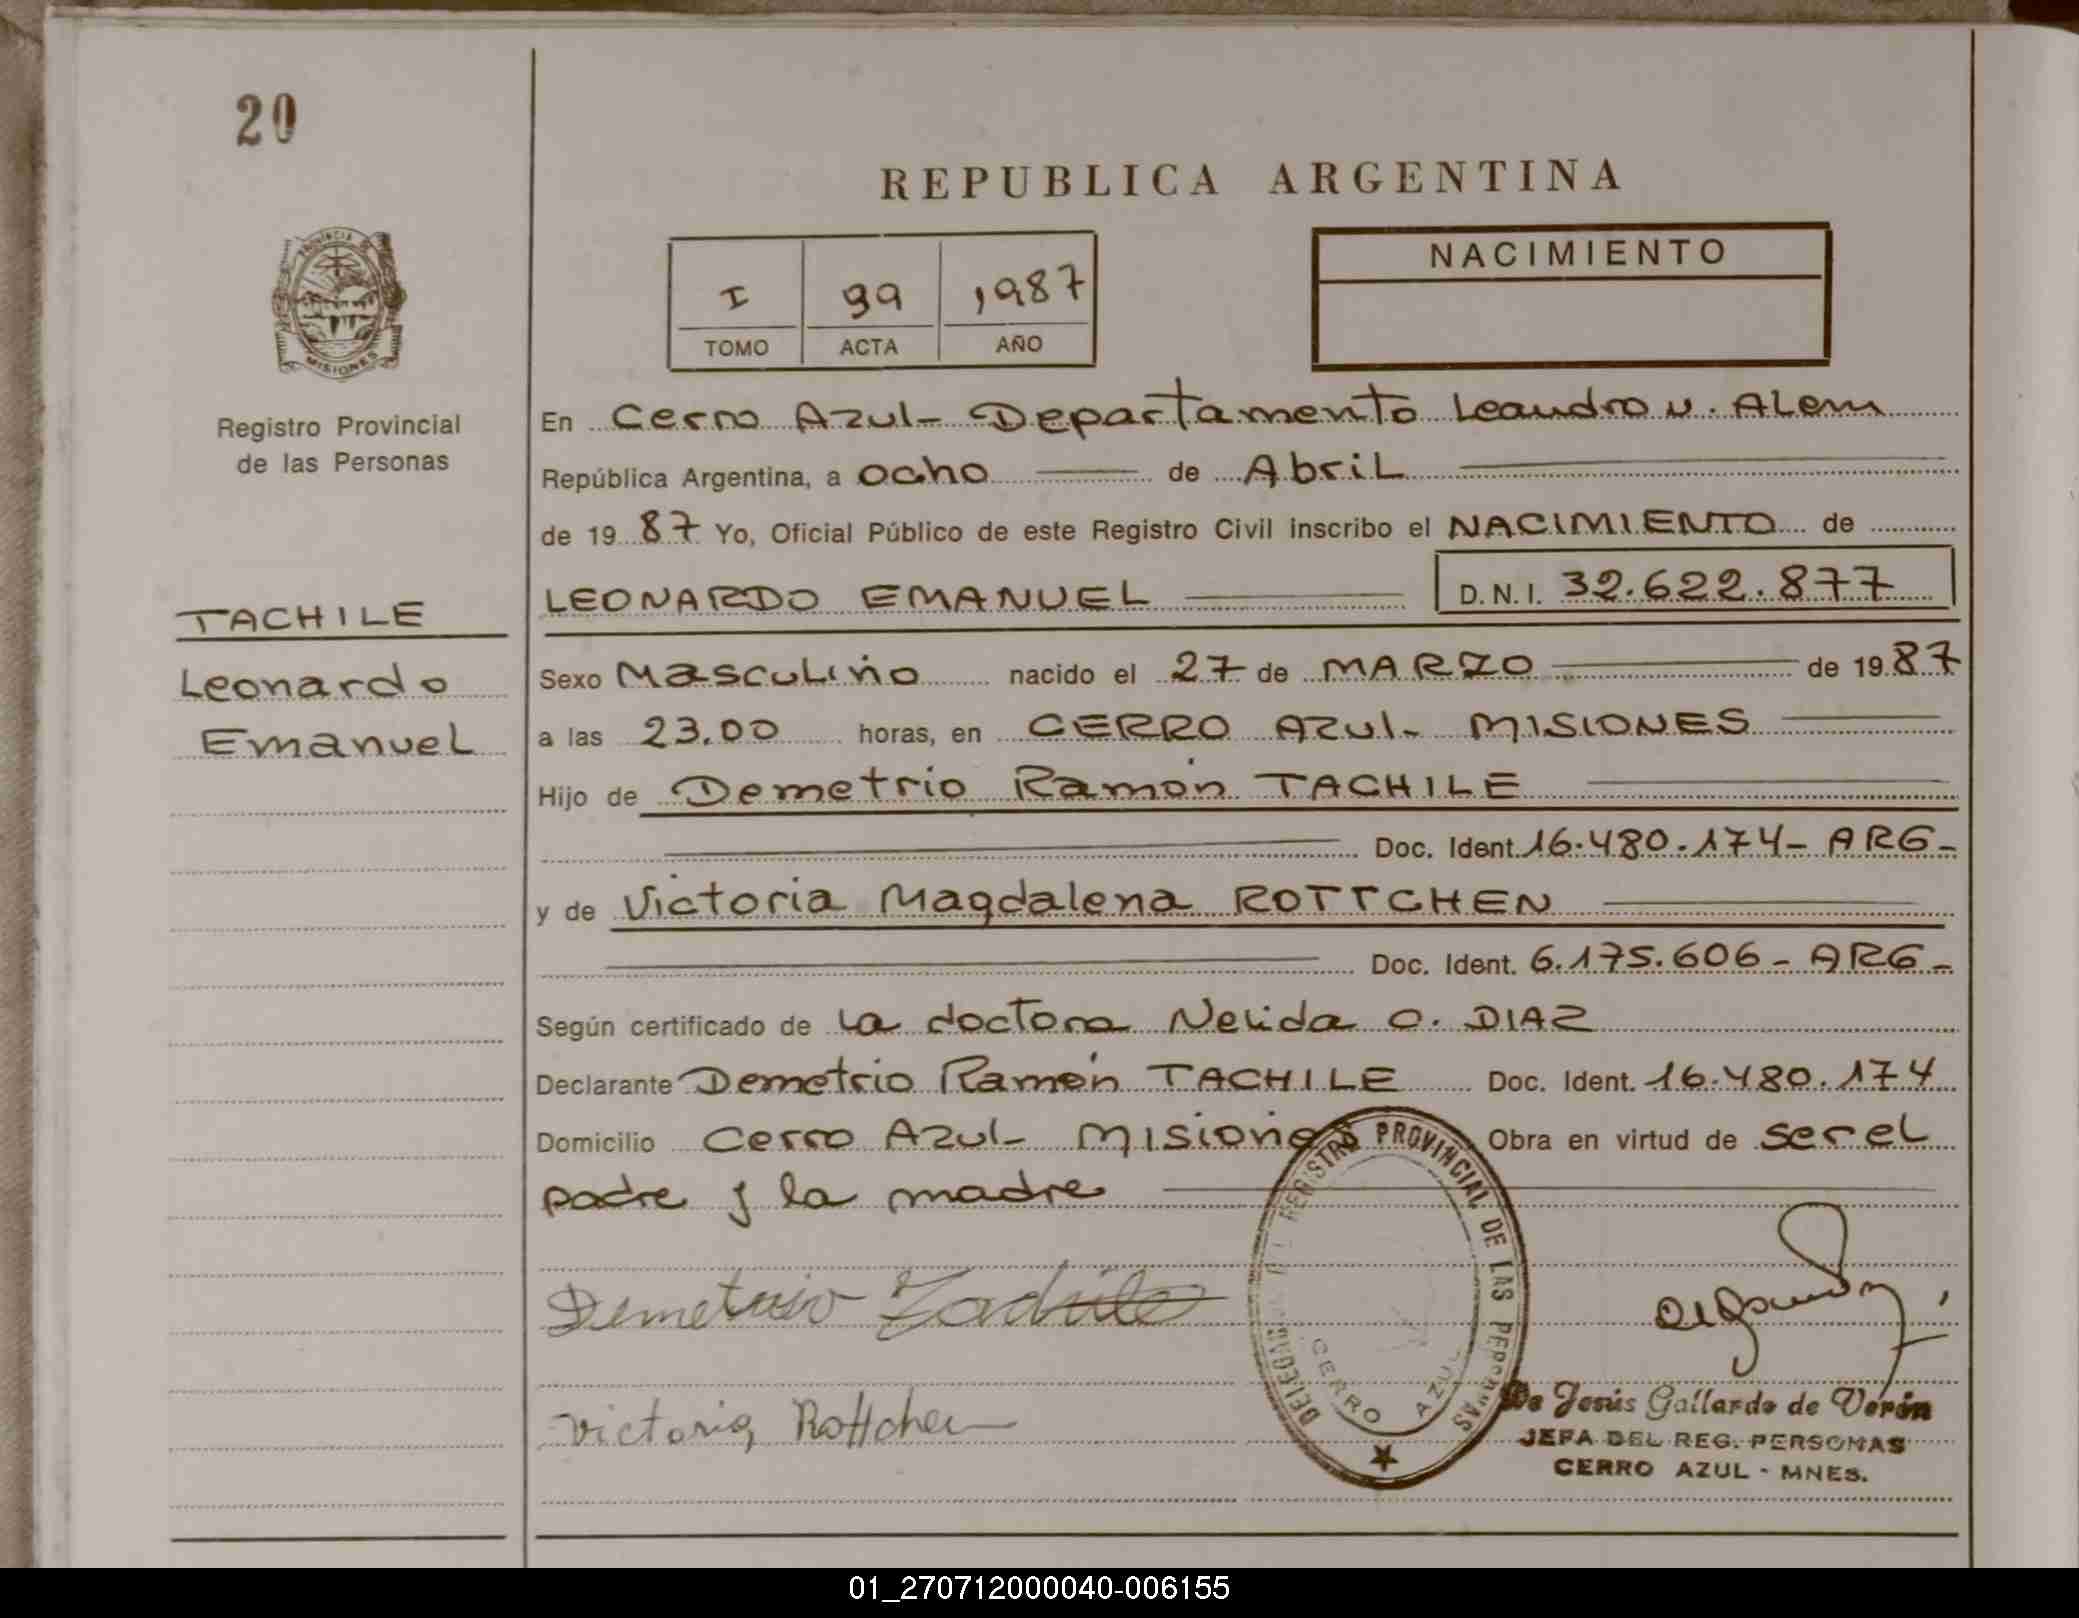 20
REPUBLICA ARGENTINA
PROVINCIA DE MISIONES
I 99 1987
TOMO ACTA AÑO
NACIMIENTO
Registro Provincial
de las Personas
TACHILE
Leonardo
Emanuel
En Cerro Azul- Departamento Leandro N. Alem
República Argentina, a ocho de Abril
de 19 87 Yo, Oficial Público de este Registro Civil inscribo el NACIMIENTO de
LEONARDO EMANUEL D.N.I. 32.622.877
Sexo Masculino nacido el 27 de MARZO de 19 87
a las 23.00 horas, en CERRO AZUL- MISIONES
Hijo de Demetrio Ramón TACHILE
Doc. Ident. 16.480.174- ARG-
y de Victoria Magdalena ROTTCHEN
Doc. Ident. 6.175.606- ARG-
Según certificado de la doctora Nelida O. DIAZ
Declarante Demetrio Ramón TACHILE Doc. Ident. 16.480.174
Domicilio Cerro Azul- Misiones Obra en virtud de ser el
padre y la madre
Demetrio Tachile
Victoria Rottchen
DELEGACION DEL REGISTRO PROVINCIAL DE LAS PERSONAS
CERRO AZUL
De Jesús Gallardo de Verón
JEFA DEL REG. PERSONAS
CERRO AZUL - MNES.
01_270712000040-006155